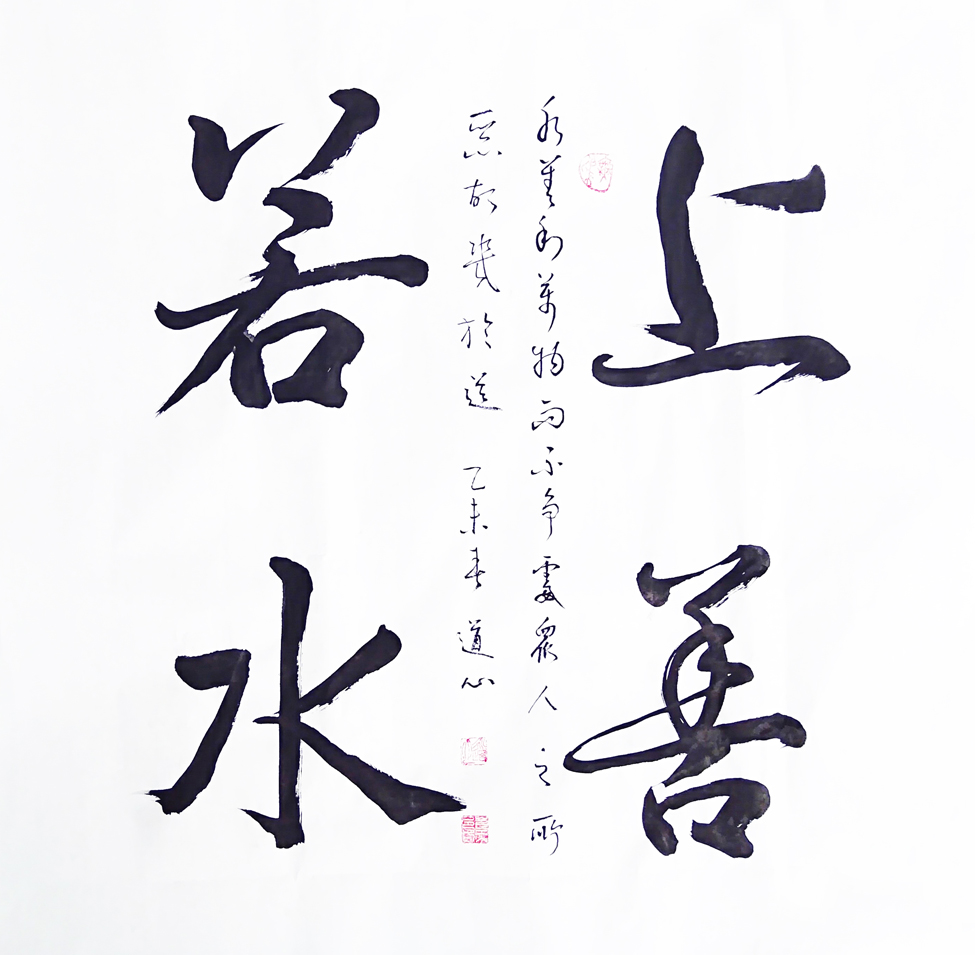 上善
若水
水善利萬物而不争處眾人之所
惡故幾於道 乙未春 道心